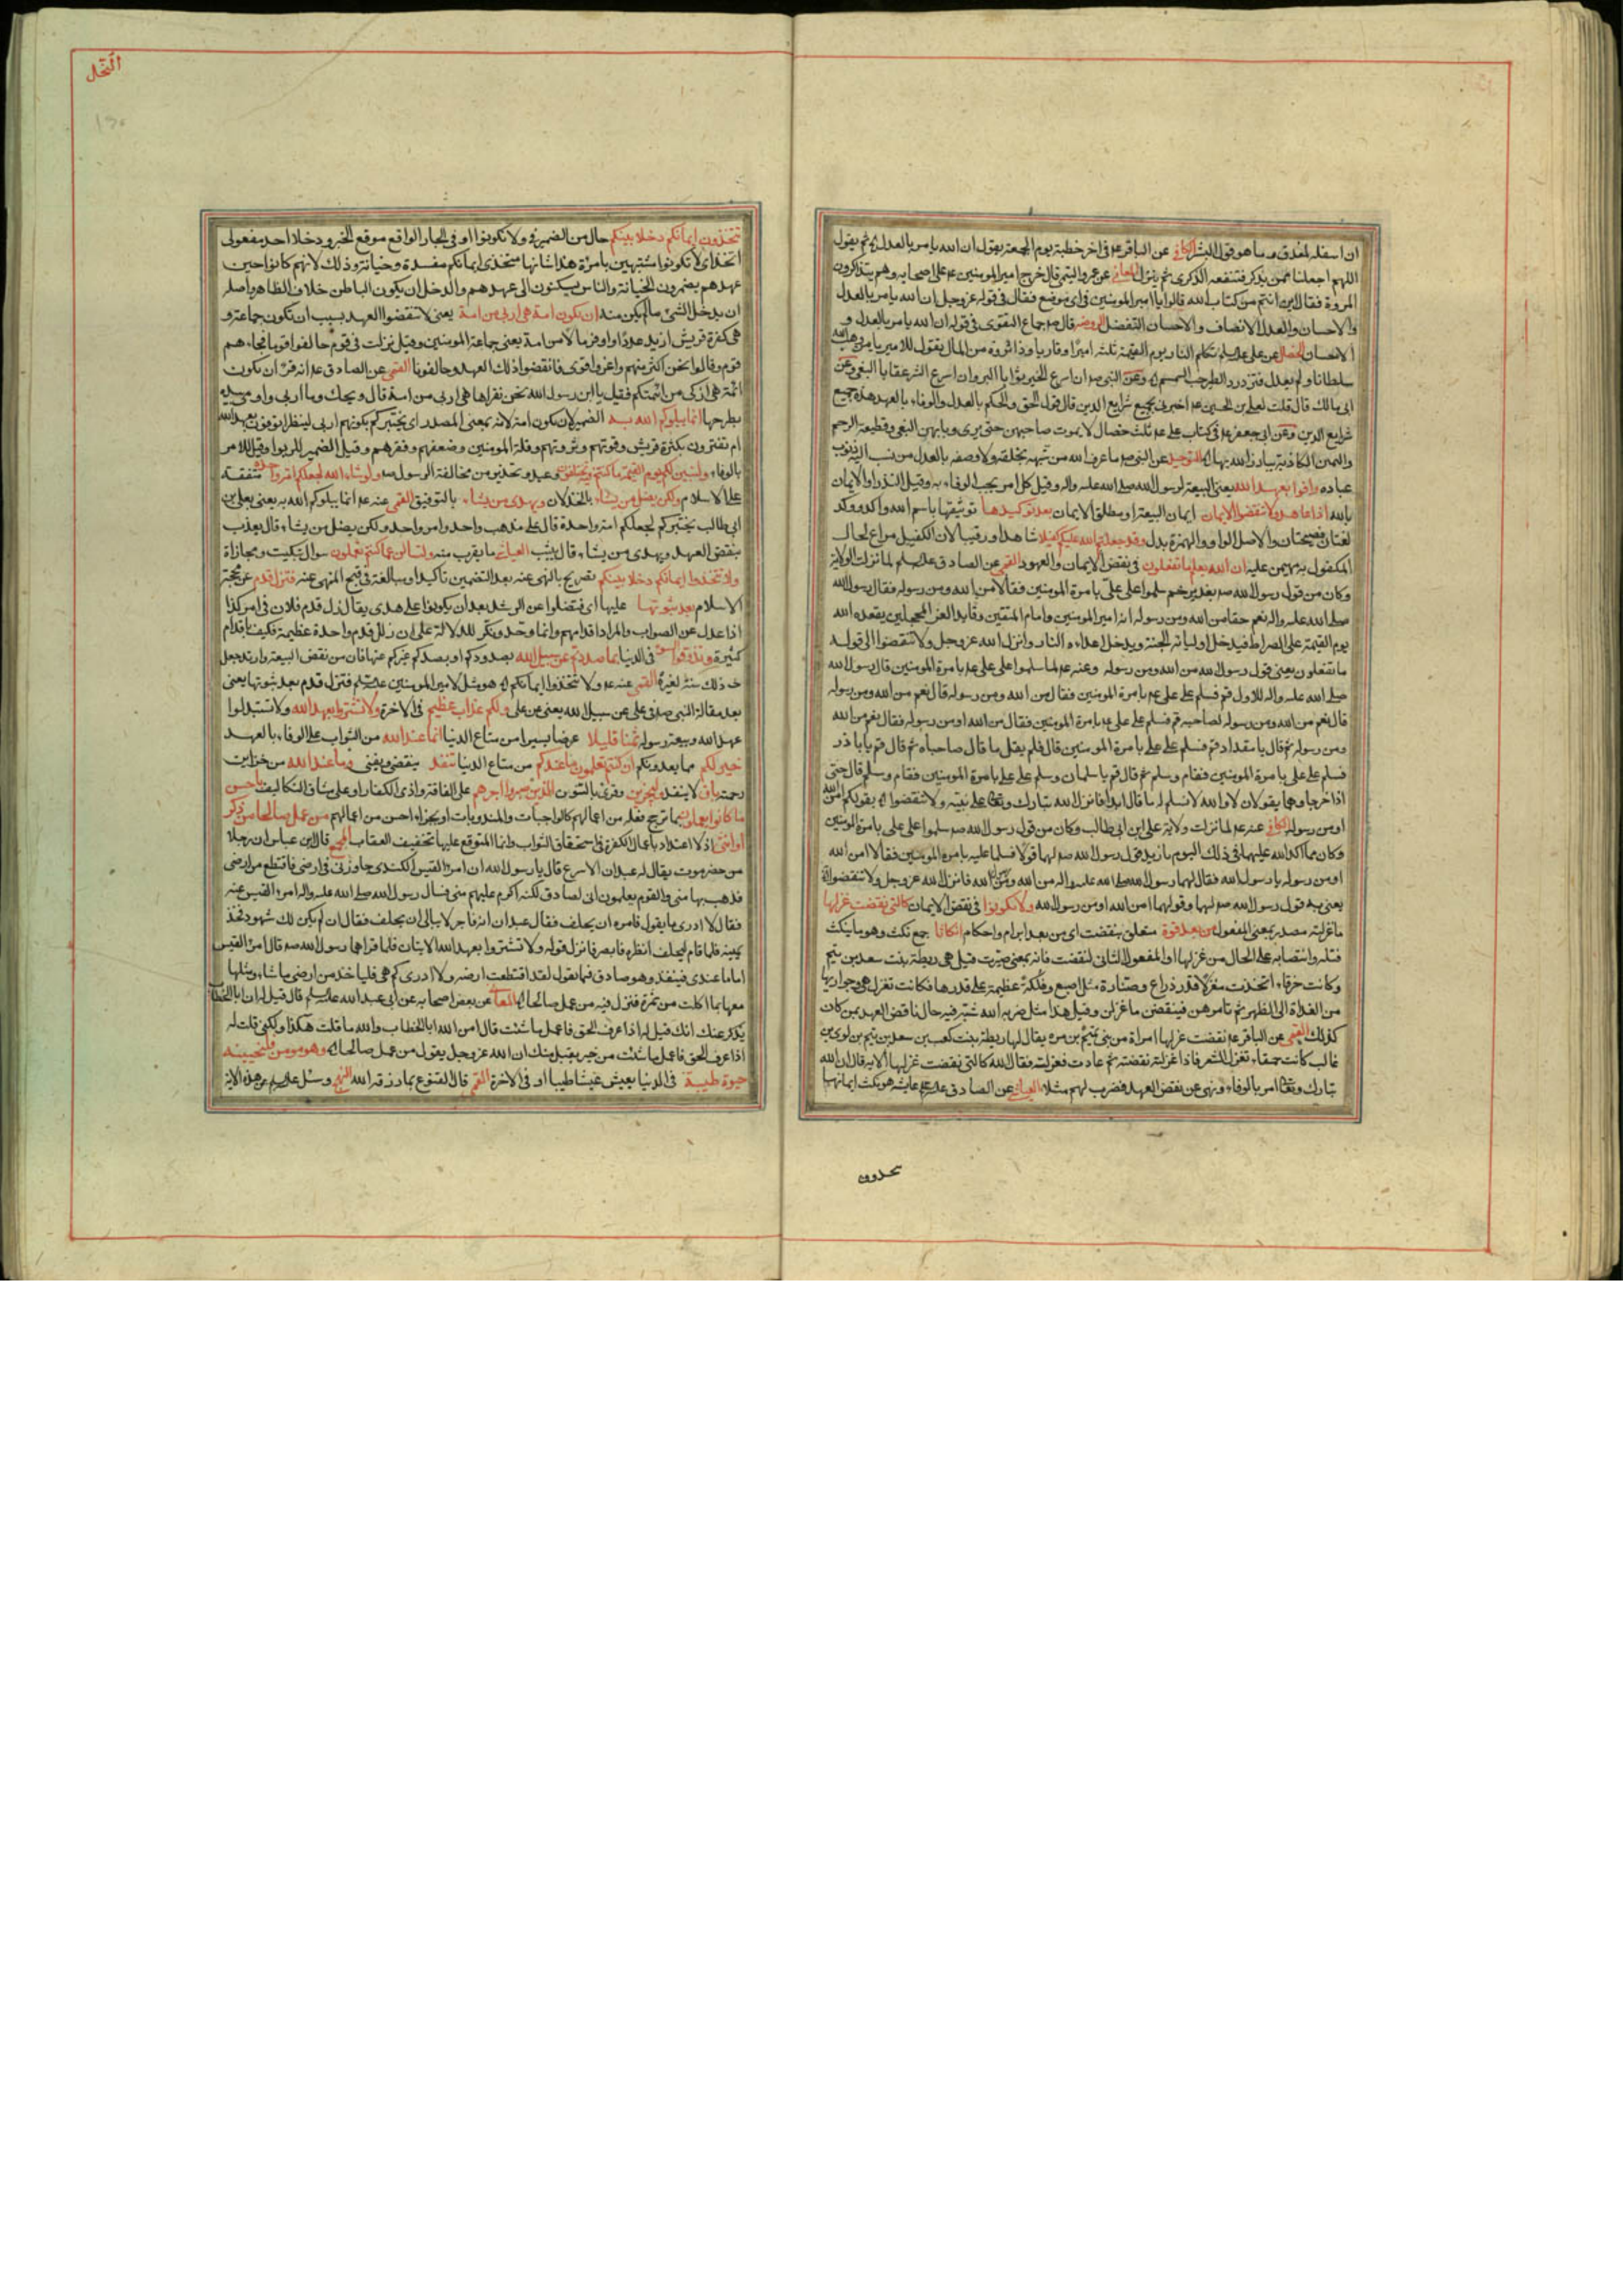 ان اسفله لمغدق وما هو قول البشر الكافي عن الباقر عم في اخر خطبة يوم الجمعة يقول ان الله يامر بالعدل ثم يقول
اللهم اجعلنا ممن يذكر فتنفعه الذكرى ثم ينزل المعاني عن عمرو التيمي قال خرج امير المومنين عم على اصحابه وهم يتذاكرون
المروة فقال اين انتم من كتاب الله قالوا يا امير المومنين في اي موضع فقال في قوله عز وجل ان الله يامر بالعدل
والاحسان والعدل الانصاف والاحسان التفضل الروضه قال صم جماع التقوى في قوله ان الله يامر بالعدل و
الاحسان الخصال عن علي عليه السلم تكلم النار يوم القيمة ثلثه اميرا وقاريا وذا ثروة من المال يقول للامير يا من وهب الله
سلطانا ولم يعدل فتزدرده الطير حب السمسم وعن النبي صم ان اسرع الخير ثوابا البر وان اسرع الشر عقابا البغي وعن
ابي مالك قال قلت لعلي بن الحسين عم اخبرني بجميع شرايع الدين قال قول الحق والحكم بالعدل والوفاء بالعهد هذه جميع
شرايع الدين وعن ابي جعفر عم في كتاب علي عم ثلث خصال لا يموت صاحبهن حتى يرى وبالهن البغي وقطيعة الرحم
واليمين الكاذبة يبارز الله بها التوحيد عن النبي صم ما عرف الله من شبهه بخلقه ولا وصفه بالعدل من نسب اليه ذنوب
عباده واوفوا بعهد الله يعني البيعة لرسول الله صلى الله عليه واله وقيل كل امر يجب الوفاء به وقيل النذر او الايمان
بالله اذا عاهدتم ولا تنقضوا الايمان ايمان البيعة او مطلق الايمان بعد توكيدها توثيقها باسم الله واكد ووكد
لغتان فصيحتان والاصل الواو والهمزة بدل وقد جعلتم الله عليكم كفيلا شاهدا ورقيبا لان الكفيل مراع لحال
المكفول به مهيمن عليه ان الله يعلم ما تفعلون في نقض الايمان والعهود القمى عن الصادق عليه السلم لما نزلت الولاية
وكان من قول رسول الله صم بغدير خم سلموا على علي بامرة المومنين فقالا من الله ومن رسوله فقال رسول الله
صلى الله عليه واله نعم حقا من الله ومن رسوله انه امير المومنين وامام المتقين وقايد الغر المحجلين يقعده الله
يوم القيمة على الصراط فيدخل اولياءه الجنة ويدخل اعداءه النار وانزل الله عز وجل ولا تنقضوا الى قوله
ما تفعلون يعني قول رسول الله من الله ومن رسوله وعنه عم لما سلموا على علي عم بامرة المومنين قال رسول الله
صلى الله عليه واله للاول قم فسلم على علي عم بامرة المومنين فقال من الله ومن رسوله قال نعم من الله ومن رسوله
قال نعم من الله ومن رسوله لصاحبه قم فسلم على علي عم بامرة المومنين فقال من الله او من رسوله فقال نعم من الله
ومن رسوله ثم قال يا مقداد قم فسلم على علي بامرة المومنين قال فلم يقل ما قال صاحباه ثم قال قم يا با ذر
فسلم على علي بامرة المومنين فقام وسلم ثم قال قم يا سلمان وسلم على علي بامرة المومنين فقام وسلم قال حتى
اذا خرجا وهما يقولان لا والله لا نسلم له ما قال ابدا فانزل الله تبارك وتعالى على نبيه ولا تنقضوا بقولكم امن الله
او من رسوله الكافي عنه عم لما نزلت ولاية علي ابن ابي طالب وكان من قول رسول الله صم سلموا على علي بامرة المومنين
وكان مما اكد الله عليهما في ذلك اليوم يا زيد قول رسول الله صم لهما قوما فسلما عليه بامرة المومنين فقالا امن الله
او من رسوله يا رسول الله فقال لهما رسول الله صلى الله عليه واله من الله ومن رسول الله فانزل الله عز وجل ولا تنقضوا الاية
يعني به قول رسول الله صم لهما وقولهما امن الله او من رسول الله ولا تكونوا في نقض الايمان كالتي نقضت غزلها
ما غزلته مصدر بمعنى المفعول من بعد قوة متعلق بنقضت اي من بعد ابرام واحكام انكاثا جمع نكث وهو ما ينكث
فتله وانتصابه على الحال من غزلها او المفعول الثاني لنقضت فانه بمعنى صيرت قيل هي ريطة بنت سعد بن تيم
وكانت خرقاء اتخذت مغزلا قدر ذراع وصنارة مثل اصبع وفلكة عظيمة على قدرها فكانت تغزل هي وجواريها
من الغداة الى الظهر ثم تامرهن فينقضن ما غزلن وقيل هذا مثل ضربه الله شبه فيه حال ناقض العهد بمن كان
كذلك القمي عن الباقر عم نقضت غزلها امراة من بني تيم بن مره يقال لها ريطة بنت كعب بن سعد بن تيم بن لوي بن
غالب كانت حمقاء تغزل الشعر فاذا غزلته نقضته ثم عادت فغزلته فقال الله كالتي نقضت غزلها الاية قال ان الله
تبارك وتعالى امر بالوفاء ونهى عن نقض العهد فضرب لهم مثلا العياشي عن الصادق عليه السلم عايشه هو نكث ايمانها
تتخذون
النحل
تتخذون ايمانكم دخلا بينكم حال من الضمير في ولا تكونوا او في الجار الواقع موقع الخبر ودخلا احد مفعولي
اتخذ اي لا تكونوا متشبهين بامراة هذا شانها متخذي ايمانكم مفسدة وخيانة وذلك لانهم كانوا حين
عهدهم يضمرون الخيانة والناس يسكنون الى عهدهم والدخل ان يكون الباطن خلاف الظاهر واصله
ان يدخل الشئ ما لم يكن منه ان تكون امة هي اربى من امة يعني لا تنقضوا العهد بسبب ان تكون جماعة و
هي كفرة قريش ازيد عددا واوفر مالا من امة يعني جماعة المومنين وقيل نزلت في قوم حالفوا قوما فجاءهم
قوم وقالوا نحن اكثر منهم واعز واقوى فانقضوا ذلك العهد وحالفونا القمى عن الصادق عم انه قرئ ان تكون
ائمة هي ازكى من ائمتكم فقيل يا ابن رسول الله نحن نقراها هي اربى من امة قال ويحك وما اربى واومى بيده
بطرحها انما يبلوكم الله به الضمير لان تكون امة لانه بمعنى المصدر اي يختبركم بكونهم اربى لينظر اتوفون بعهد الله
ام تغترون بكثرة قريش وقوتهم وثروتهم وقلة المومنين وضعفهم وفقرهم وقيل الضمير للربوا وقيل للامر
بالوفاء وليبينن لكم يوم القيمة ما كنتم فيه تختلفون وعيد وتحذير من مخالفة الرسول صم ولو شاء الله لجعلكم امة واحدة متفقة
على الاسلام ولكن يضل من يشاء بالخذلان ويهدي من يشاء بالتوفيق القمى عنه عم انما يبلوكم الله به يعني بعلي بن
ابي طالب يختبركم لجعلكم امة واحدة قال على مذهب واحد وامر واحد ولكن يضل من يشاء قال يعذب
بنقض العهد ويهدي من يشاء قال يثيب العياشي ما يقرب منه ولتسالن عما كنتم تعملون سوال تبكيت ومجازاة
ولا تتخذوا ايمانكم دخلا بينكم تصريح بالنهي عنه بعد التضمين تاكيدا ومبالغة في قبح المنهي عنه فتزل قدم عن محجة
الاسلام بعد ثبوتها عليها اي فتضلوا عن الرشد بعد ان يكونوا على هدى يقال زل قدم فلان في امر كذا
اذا عدل عن الصواب والمراد اقدامهم وانما وحد ونكر للدلالة على ان زلل قدم واحدة عظيمة فكيف باقدام
كثيرة وتذوقوا السوء في الدنيا بما صددتم عن سبيل الله بصدودكم او بصدكم غيركم عنها فان من نقض البيعة وارتد جعل
ذلك سنة لغيره القمى عنه عم ولا تتخذوا ايمانكم هو مثل لامير المومنين عليه السلم فتزل قدم بعد ثبوتها يعني
بعد مقالة النبي صم في علي عن سبيل الله يعني عن علي ولكم عذاب عظيم في الاخرة ولا تشتروا بعهد الله ولا تستبدلوا
عهد الله وبيعة رسوله ثمنا قليلا عرضا يسيرا من متاع الدنيا انما عند الله من الثواب على الوفاء بالعهد
خير لكم مما يعدونكم ان كنتم تعلمون ما عندكم من متاع الدنيا ينفد ينقضي ويفنى وما عند الله من خزاين
رحمته باق لا ينفد ليجزين وقرئ بالنون الذين صبروا اجرهم على الفاقة واذى الكفار او على مشاق التكاليف باحسن
ما كانوا يعملون بما ترجح فعله من اعمالهم كالواجبات والمندوبات او بجزاء احسن من اعمالهم من عمل صالحا من ذكر
او انثى اذ لا اعتداد باعمال الكفرة في استحقاق الثواب وانما المتوقع عليها تخفيف العقاب المجمع قال ابن عباس ان رجلا
من حضرموت يقال له عبدان الاسرع قال يا رسول الله ان امرا القيس الكندي جاورني في ارضي فاقتطع من ارضي
فذهب بها مني والقوم يعلمون اني لصادق لكنه اكرم عليهم مني فسال رسول الله صلى الله عليه واله امرا القيس عنه
فقال لا ادري ما يقول فامره ان يحلف فقال عبدان انه فاجر لا يبالي ان يحلف فقال ان لم يكن لك شهود فخذ
بيمينه فلما قام ليحلف انظره فانصرفا فنزل قوله ولا تشتروا بعهد الله الايتان فلما قراهما رسول الله صم قال امرؤ القيس
اما ما عندي فينفد وهو صادق فيما يقول لقد اقتطعت ارضه ولا ادري كم هي فلياخذ من ارضي ما شاء ومثلها
معها بما اكلت من ثمرة فنزل فيه من عمل صالحا المعاني عن بعض اصحابه عن ابي عبد الله عليه السلم قال قيل له ان ابا الخطاب
يذكر عنك انك قيل له اذا عرف الحق فاعمل ما شئت قال لعن الله ابا الخطاب والله ما قلت هكذا ولكني قلت له
اذا عرف الحق فاعمل ما شئت من خير يقبل منك ان الله عز وجل يقول من عمل صالحا وهو مومن فلنحيينه
حيوة طيبة في الدنيا يعيش عيشا طيبا او في الاخرة القمى قال القنوع بما رزقه الله النهج وسئل عليه السلم عن هذه الاية